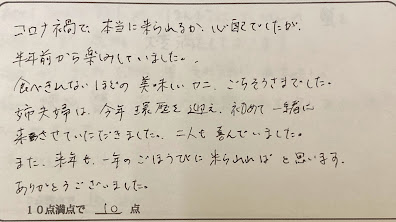 コロナ禍で、本当に来られるか、心配でしたが、
半年前から楽しみしていました。
食べきれないほどの美味しいカニ、ごちそうさまでした。
姉夫婦は、今年還暦を迎え、初めて一緒に
来させていただきました。二人も喜んでいました。
また、来年も、一年のごほうびに来られればと思います。
ありがとうございました。
10点満点で 10 点